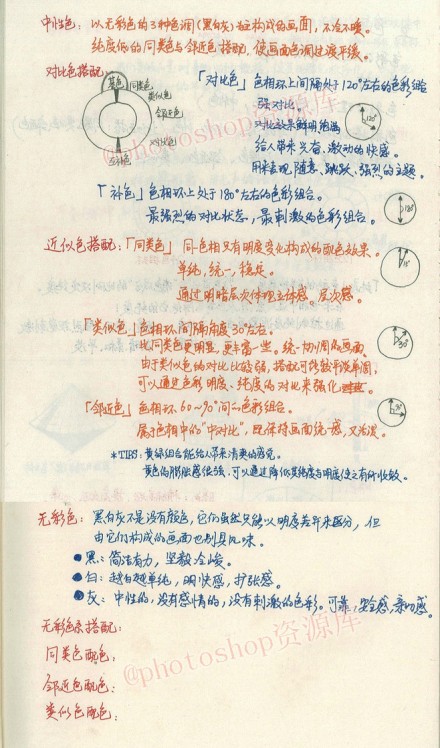 中性色：以无彩色的3种色调(黑白灰)构成的画面，不冷不暖。
纯度低的同类色与邻近色搭配，使画面色调过渡平缓。
对比色搭配：
基色
同类色
类似色
邻近色
对比色
补色
「对比色」色相环上间隔处于120°左右的色彩组合
强对比。
对比效果鲜明饱满
给人带来兴奋、激动的快感。
用来表现随意、跳跃、强烈的主题。
120°
「补色」色相环上处于180°左右的色彩组合。
最强烈的对比状态，最刺激的色彩组合。
180°
近似色搭配：「同类色」同一色相又有明度变化构成的配色效果。
单纯，统一，稳定。
通过明暗层次体现立体感。层次感。
「类似色」色相环间隔角度30°左右。
比同类色更明显，更丰富一些。统一协调的画面。
由于类似色的对比比较弱，搭配可能较平淡单调，
可以通过色彩明度、纯度的对比来强化
30°
「邻近色」色相环60~90°间的色彩组合。
属于色相中的“中对比”，既保持画面统一感，又活泼。
*TIPS：黄绿组合能给人带来清爽的感觉。
黄色的膨胀感很强，可以通过降低其纯度与明度使之有所收敛。
无彩色：黑白灰不是没有颜色，它们虽然只能以明度差异来区分，但
由它们构成的画面也别具风味。
●黑：简洁有力，坚毅冷峻。
●白：越白越单纯，明快感，扩张感。
●灰：中性的，没有感情的，没有刺激的色彩。可靠，安全感，亲切感。
无彩色系搭配：
同类色配色：
邻近色配色：
类似色配色：
@photoshop资源库
@photoshop资源库